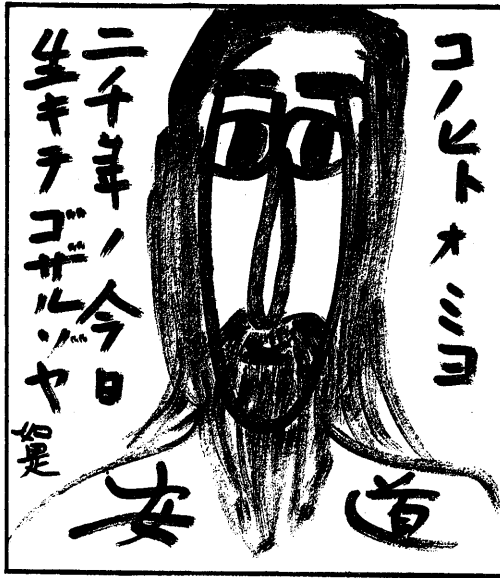 コノヒトオミヨ
二千年ノ今日
生キテゴザルゾヤ
如是
道
安